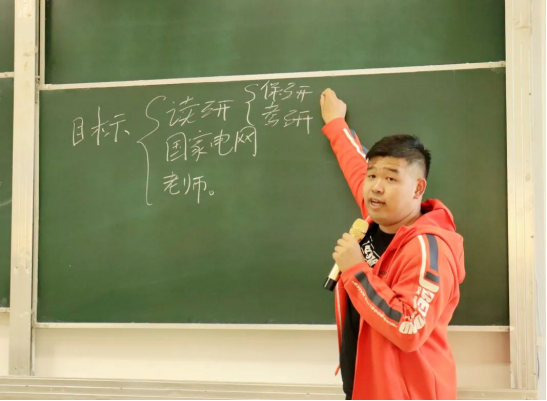 目标
读研
保研
考研
国家电网
老师。